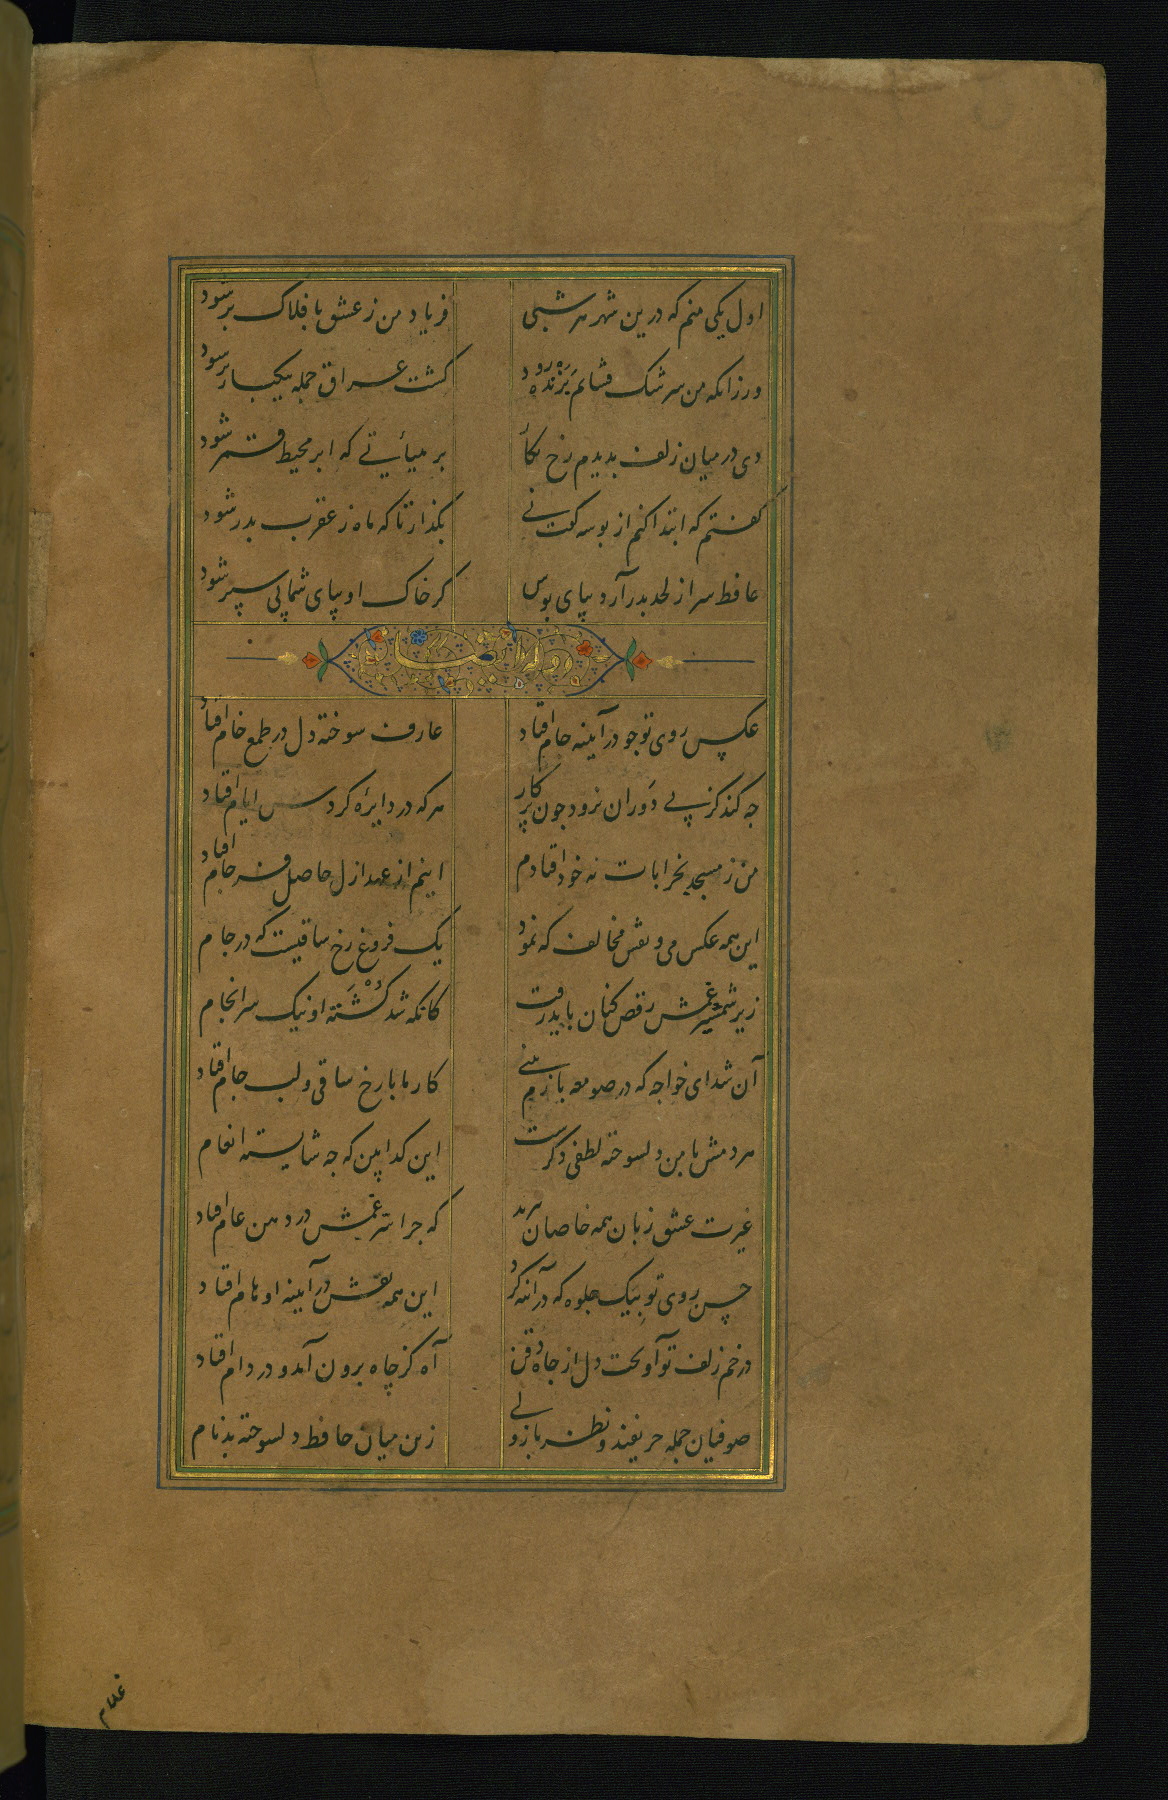 اول یکی منم که درین شهر هر شبی فریاد من ز عشق بافلاک برشود
ورزانکه من سرشک فشانم بزنده رود کشت عراق جمله بیکبار برشود
دی در میان زلف بدیدم رخ نکار بر هیأتی که ابر محیط قمر شود
گفتم که ابتدا کنم از بوسه گفت نی بگذار تا که ماه ز عقرب بدر شود
حافظ سر از لحد بدر آرد بپای بوس گر خاک او بپای شما پی سپر شود
وله ایضا
عکس روی تو جو در آینه جام افتاد عارف سوخته دل در طمع خام افتاد
جه کند کز پی دوران نرود جون پرکار هر که در دایره کردس ایام افتاد
من ز مسجد بخرابات نه خود افتادم اینم از عهد ازل حاصل فرجام افتاد
این همه عکس می و نقش مخالف که نمود یک فروغ رخ ساقیست که در جام
زیر شمشیر غمش رقص کنان باید رفت کانکه شد کشته او نیک سرانجام
آن شد ای خواجه که در صومعه بازم بینی کار ما با رخ ساقی و لب جام افتاد
هر دمش با من دلسوخته لطفی دکرست این کدا بین که جه شایسته انعام
غیرت عشق زبان همه خاصان ببرید که جرا سر غمش در دهن عام افتاد
حسن روی تو بیک جلوه که در آینه کرد این همه نقش در آیینه اوهام افتاد
در خم زلف تو آویخت دل از جاه ذقن آه کز چاه برون آمد و در دام افتاد
صوفیان جمله حریفند و نظرباز ولی زین میان حافظ دلسوخته بدنام